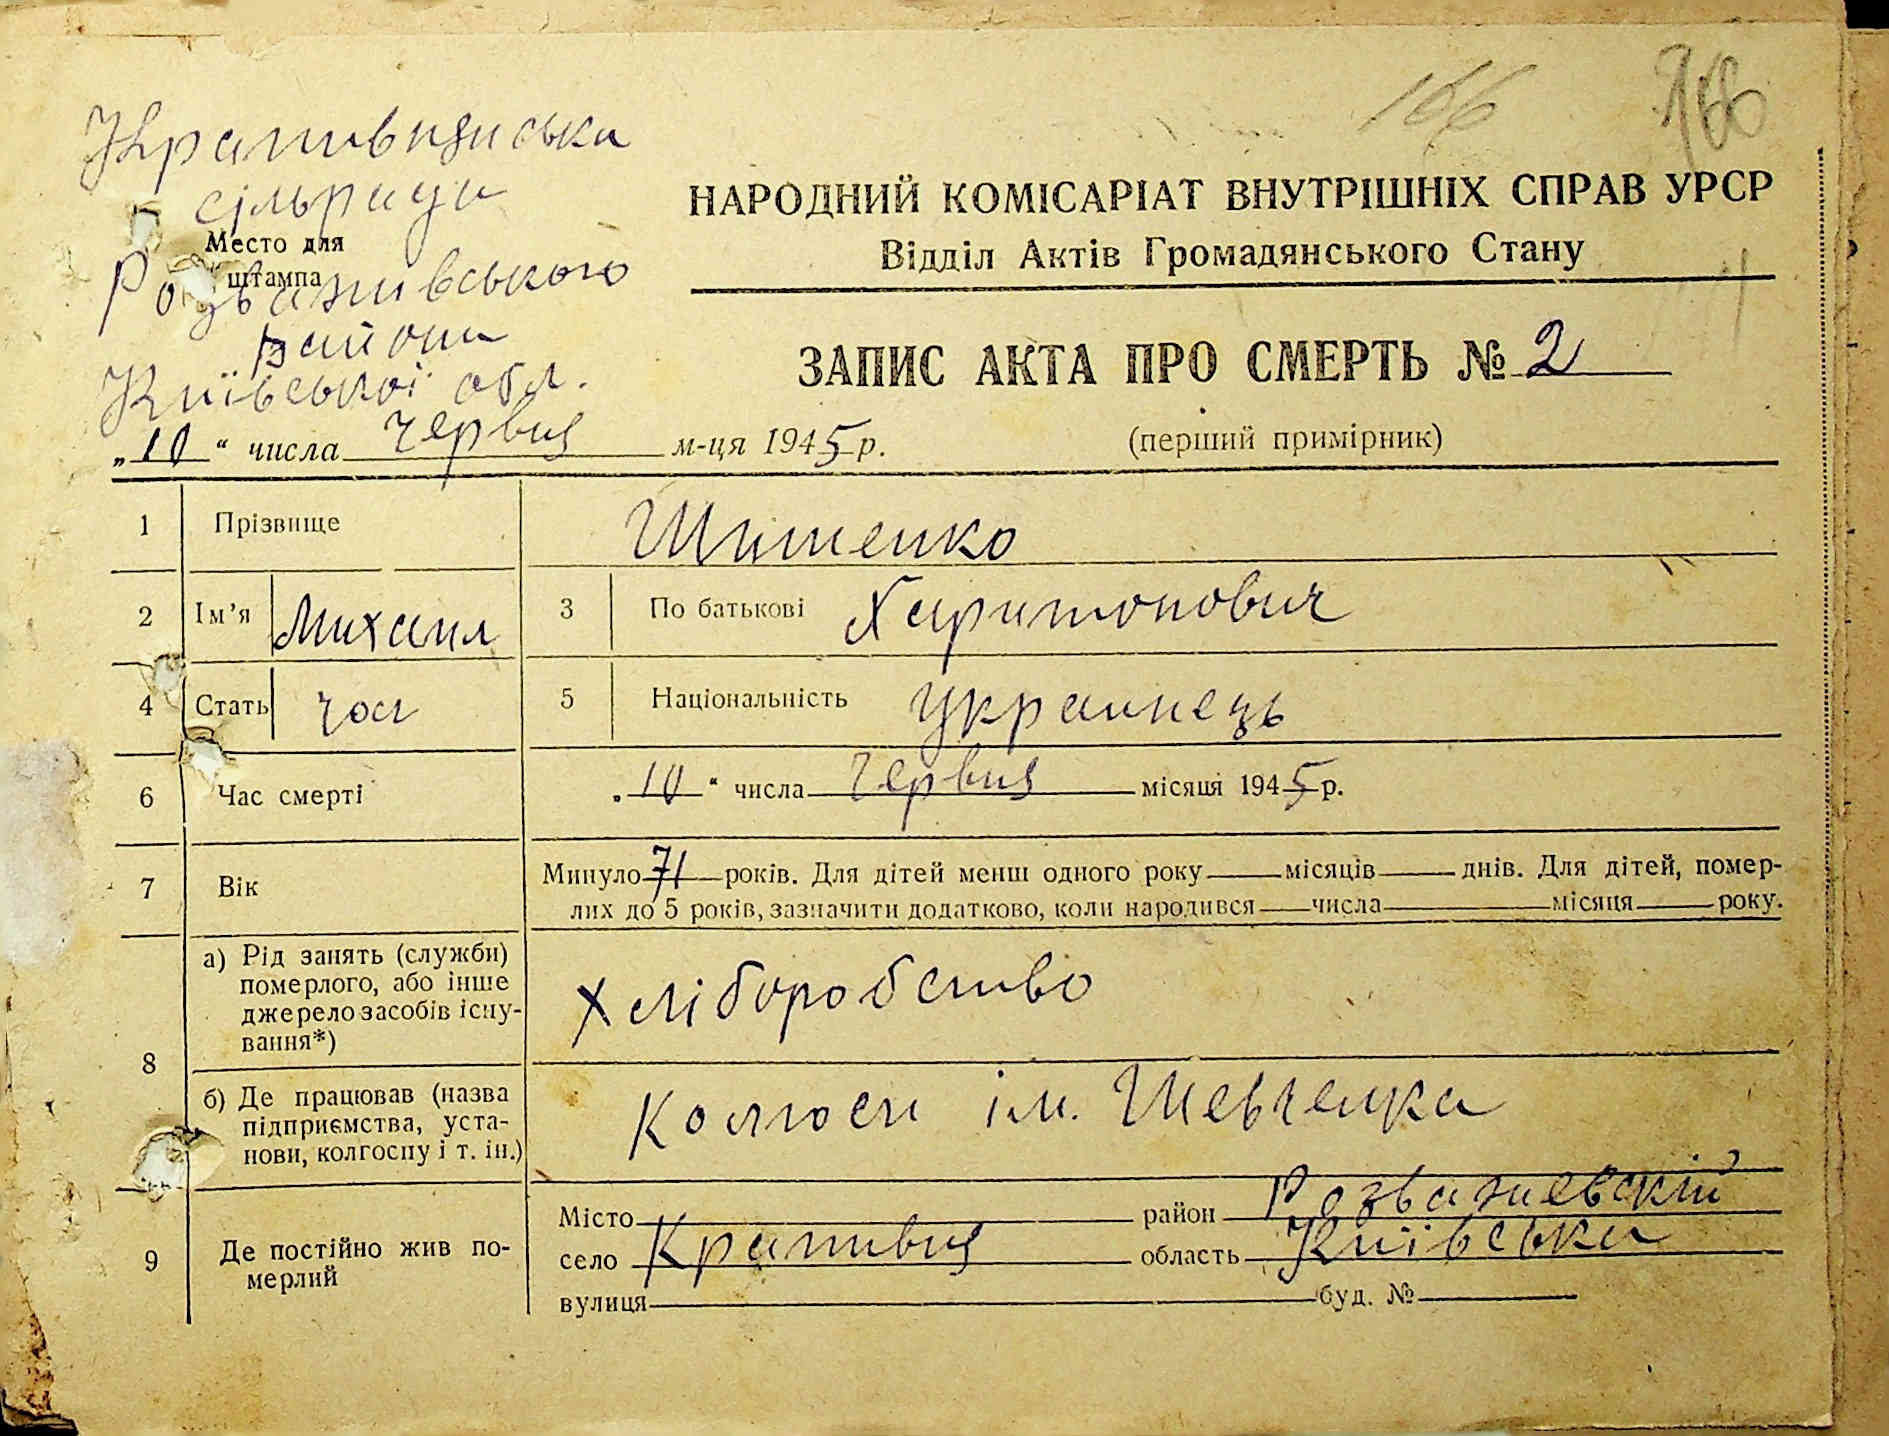 166
166
Крапивнянська
сільрада
Место для
штампа
Розваживського
району
Київської обл.
НАРОДНИЙ КОМІСАРІАТ ВНУТРІШНІХ СПРАВ УРСР
Відділ Актів Громадянського Стану
ЗАПИС АКТА ПРО СМЕРТЬ № 2
„10“ числа червня м-ця 1945 р.
(перший примірник)
1 Прізвище
2 Ім’я Михаил 3 По батькові Харитонович
4 Стать чол 5 Національність Украинець
6 Час смерті „10“ числа червня місяця 1945 р.
7 Вік Минуло 71 років. Для дітей менш одного року місяців днів. Для дітей, помер-
лих до 5 років, зазначити додатково, коли народився числа місяця року.
8 а) Рід занять (служби)
померлого, або інше
джерело засобів існу-
вання*)
Хліборобство
б) Де працював (назва
підприємства, уста-
нови, колгоспу і т. ін.)
Колгосп ім. Шевченка
9 Де постійно жив по-
мерлий
Місто район Розважевскій
село Крапивня область Київська
вулиця буд. №